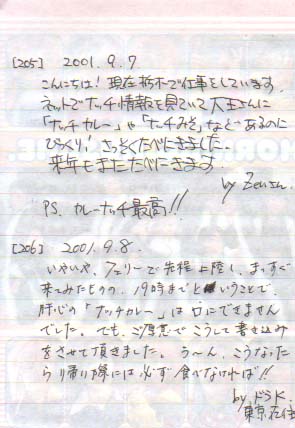 [205] 2001.9.7
こんにちは! 現在栃木で仕事をしています。
ネットでナッチ情報を見ていて大王さんに
「ナッチカレー」や「ナッチみそ」などあるのに
びっくり! さっそくたべにきました。
来年もまたたべにきます。
by Zenさん
PS. カレーナッチ最高!!
[206] 2001.9.8.
いやいや、フェリーで先程上陸し、まっすぐ
来てみたものの、19時までということで、
肝心の「ナッチカレー」は口にできません
でした。でも、ご厚意でこうして書き込み
をさせて頂きました。う〜ん、こうなった
ら帰り際には必ず食べなければ!!
by ドラK
東京在住